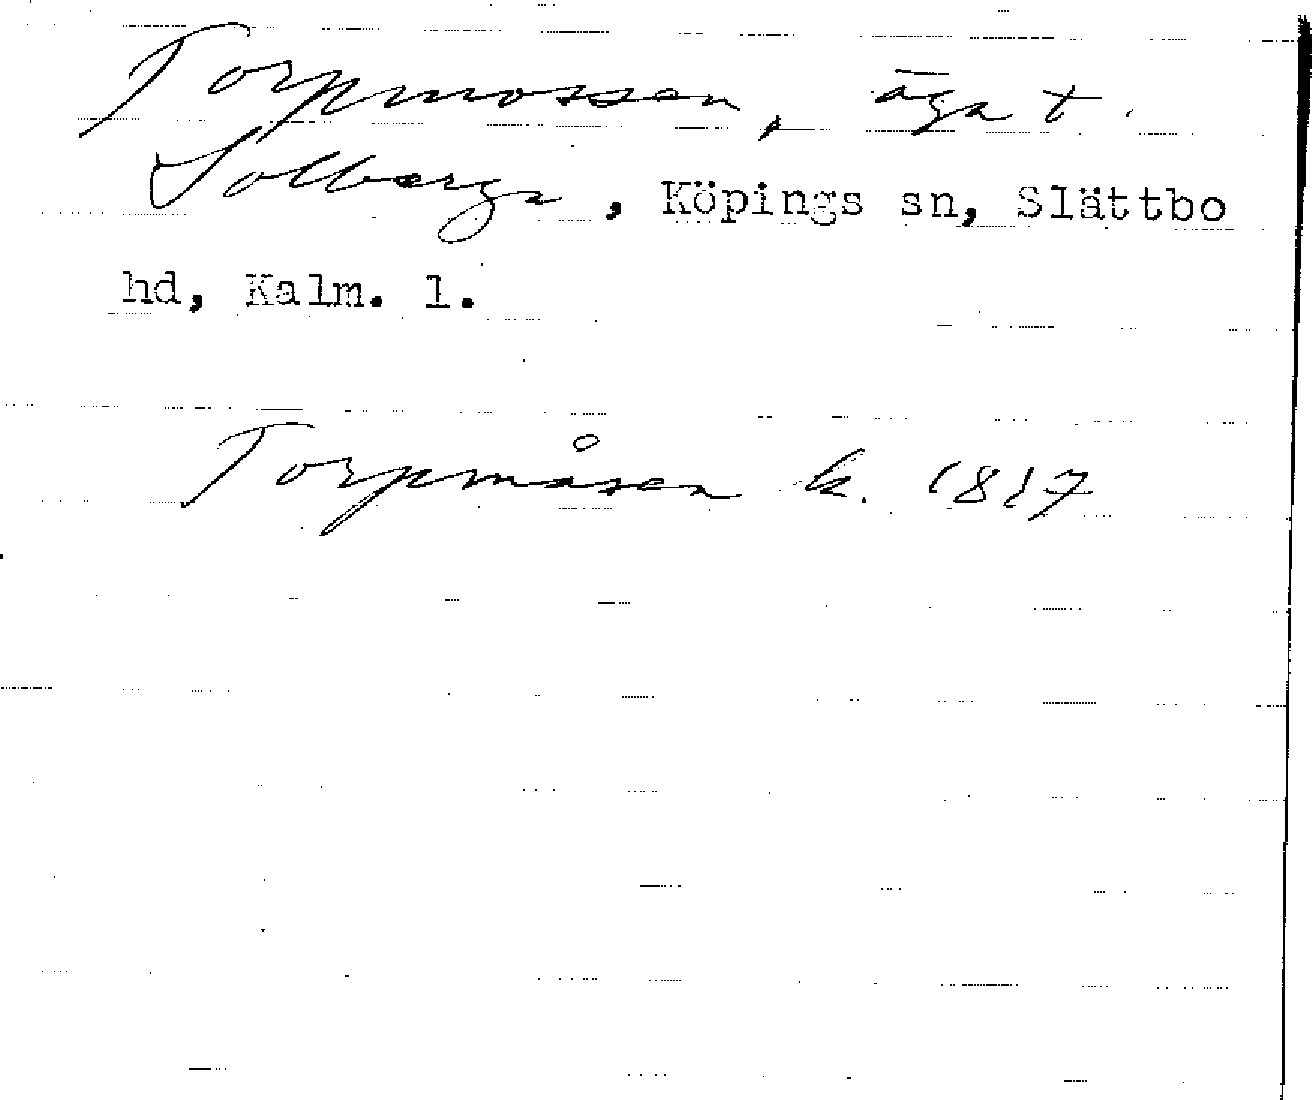 Torpmossen, äga t.
Solberga, Köpings sn, Slättbo
hd, Kalm. l.
Torpmåsen k. 1817